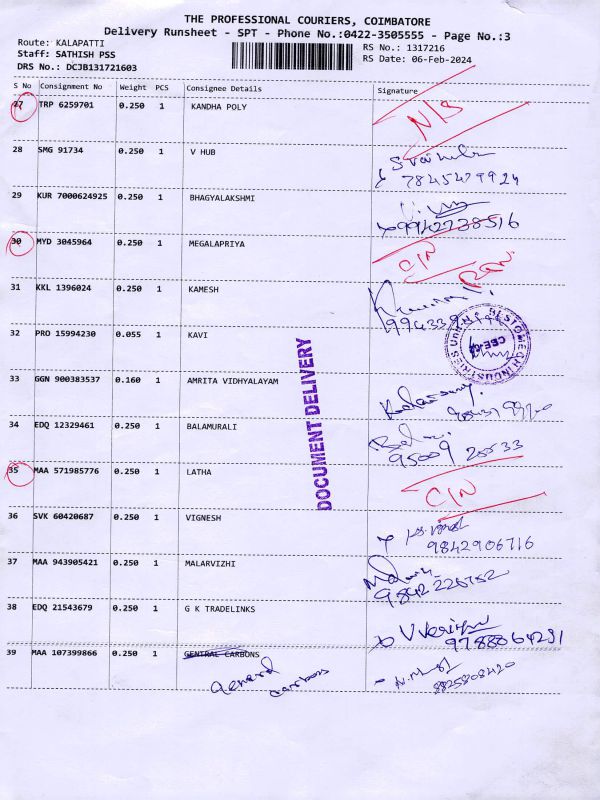 THE PROFESSIONAL COURIERS, COIMBATORE
Delivery Runsheet - SPT - Phone No.:0422-3505555 - Page No.:3
Route: KALAPATTI
RS No.: 1317216
Staff: SATHISH PSS
RS Date: 06-Feb-2024
DRS No.: DCJB131721603
S No Consignment No Weight PCS Consignee Details Signature
27 TRP 6259701 0.250 1 KANDHA POLY
N/S
28 SMG 91734 0.250 1 V HUB
7845479924
29 KUR 7000624925 0.250 1 BHAGYALAKSHMI
9942738516
30 MYD 3045964 0.250 1 MEGALAPRIYA
C/N
31 KKL 1396024 0.250 1 KAMESH
32 PRO 15994230 0.055 1 KAVI
33 GGN 900383537 0.160 1 AMRITA VIDHYALAYAM
34 EDQ 12329461 0.250 1 BALAMURALI
35 MAA 571985776 0.250 1 LATHA
C/N
36 SVK 60420687 0.250 1 VIGNESH
9842906716
37 MAA 943905421 0.250 1 MALARVIZHI
9842226752
38 EDQ 21543679 0.250 1 G K TRADELINKS
9788864231
39 MAA 107399866 0.250 1 GENERAL CARBONS
General carbons
8825808420
DOCUMENT DELIVERY